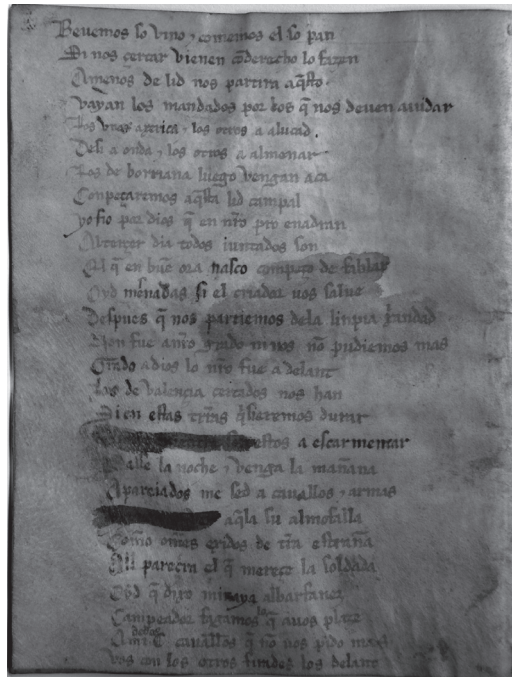 Beuemos so vino ⁊ comemos el so pan
Si nos çercar vienen cõ derecho lo fazen
Amenos de lid nos partira aq̃sto
vayan los mandados por los q̃ nos deuen aiudar
Los vnos axerica ⁊ los otros a alucad
Desi a onda ⁊ los otros a almenar
Los de borriana luego vengan aca
Conpeçaremos aq̃sta lid campal
yo fio por dios q̃ en nr̃o pro enadran
Al terçer dia todos iuntados son
El q̃ en buẽ ora nasco compeço de fablar
Oyd mesnadas si el criador uos salue
Despues q̃ nos partiemos dela linpia xr̃iandad
Non fue a nr̃o grado ni nos nõ pudiemos mas
Grado a dios lo nr̃o fue adelant
Los de valençia çercados nos han
Si en estas tr̃ras q̃sieremos durar
estos a escarmentar
Passe la noche ⁊ venga la mañana
Apareiados me sed a cauallos ⁊ armas
aq̃la su almofalla
Como omes exidos de tr̃ra estraña
Alli parecra el q̃ mereçe la soldada
Oyd q̃ dixo minaya albarfanez
Campeador fagamos lo q̃ auos plaze
Amí dedes .C. caualleros q̃ nõ uos pido mas
vos con los otros firades los delant